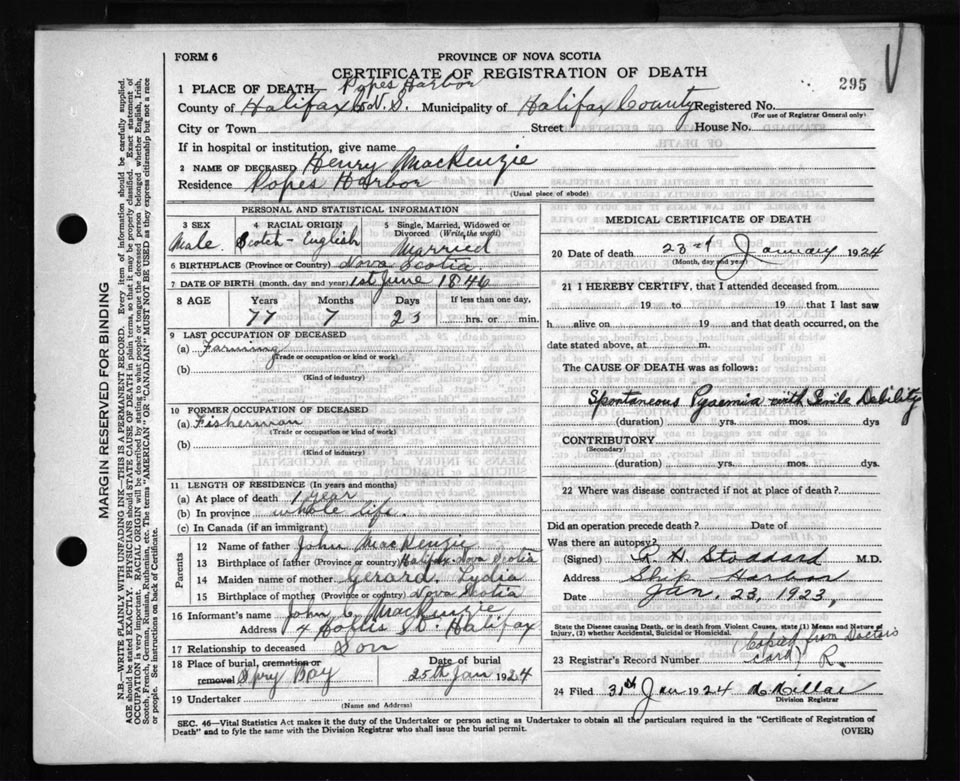 FORM 6
PROVINCE OF NOVA SCOTIA
CERTIFICATE OF REGISTRATION OF DEATH
295
1 PLACE OF DEATH Popes Harbor
County of Halifax N.S. Municipality of Halifax County Registered No.
(For use of Registrar General only)
City or Town Street House No.
If in hospital or institution, give name
2 NAME OF DECEASED Henry MacKenzie
Residence Popes Harbor
(Usual place of abode)
PERSONAL AND STATISTICAL INFORMATION
3 SEX 4 RACIAL ORIGIN 5 Single, Married, Widowed or Divorced (Write the word)
Male. Scotch-English Married
6 BIRTHPLACE (Province or Country) Nova Scotia
7 DATE OF BIRTH (month, day and year) 1st June 1846
8 AGE Years Months Days If less than one day,
77 7 23 hrs. or min.
9 LAST OCCUPATION OF DECEASED
(a) Farming
(Trade or occupation or kind of work)
(b)
(Kind of industry)
10 FORMER OCCUPATION OF DECEASED
(a) Fisherman
(Trade or occupation or kind of work)
(b)
(Kind of industry)
11 LENGTH OF RESIDENCE (In years and months)
(a) At place of death 1 year
(b) In province whole life
(c) In Canada (if an immigrant)
Parents
12 Name of father John MacKenzie
13 Birthplace of father (Province or Country) Halifax Nova Scotia
14 Maiden name of mother Gerard, Lydia
15 Birthplace of mother (Province or country) Nova Scotia
16 Informant's name John C. MacKenzie
Address 4 Hollis St. Halifax
17 Relationship to deceased Son
18 Place of burial, cremation or removal Spry Bay Date of burial 25th Jan 1924
19 Undertaker
(Name and Address)
MEDICAL CERTIFICATE OF DEATH
20 Date of death 23rd January 1924
(Month, day and year)
21 I HEREBY CERTIFY, that I attended deceased from
19 to 19 that I last saw
h alive on 19 and that death occurred, on the
date stated above, at m.
The CAUSE OF DEATH was as follows:
Spontaneous Pyaemia with Senile Debility
(duration) yrs. mos. dys
CONTRIBUTORY
(Secondary)
(duration) yrs. mos. dys.
22 Where was disease contracted if not at place of death?
Did an operation precede death? Date of
Was there an autopsy?
(Signed) R. H. Stoddard M.D.
Address Ship Harbor
Date Jan. 23, 1923,
State the Disease causing Death, or in death from Violent Causes, state (1) Means and Nature of
Injury, (2) whether Accidental, Suicidal or Homicidal.
(Copied from Doctors
23 Registrar's Record Number card) R.
24 Filed 31st Jan 1924 Millar
Division Registrar
SEC. 46—Vital Statistics Act makes it the duty of the Undertaker or person acting as Undertaker to obtain all the particulars required in the "Certificate of Registration of
Death" and to fyle the same with the Division Registrar who shall issue the burial permit.
(OVER)
MARGIN RESERVED FOR BINDING
N.B.—WRITE PLAINLY WITH UNFADING INK—THIS IS A PERMANENT RECORD. Every item of information should be carefully supplied.
AGE should be stated EXACTLY. PHYSICIANS should STATE CAUSE OF DEATH in plain terms, so that it may be properly classified. Exact statement of
OCCUPATION is very important. RACIAL ORIGIN will be described by stating to what people or tongue the deceased person belonged whether English, Irish,
Scotch, French, German, Russian, Ruthenian, etc. The terms "AMERICAN" OR "CANADIAN" MUST NOT BE USED as they express citizenship but not a race
or people. See instructions on back of Certificate.